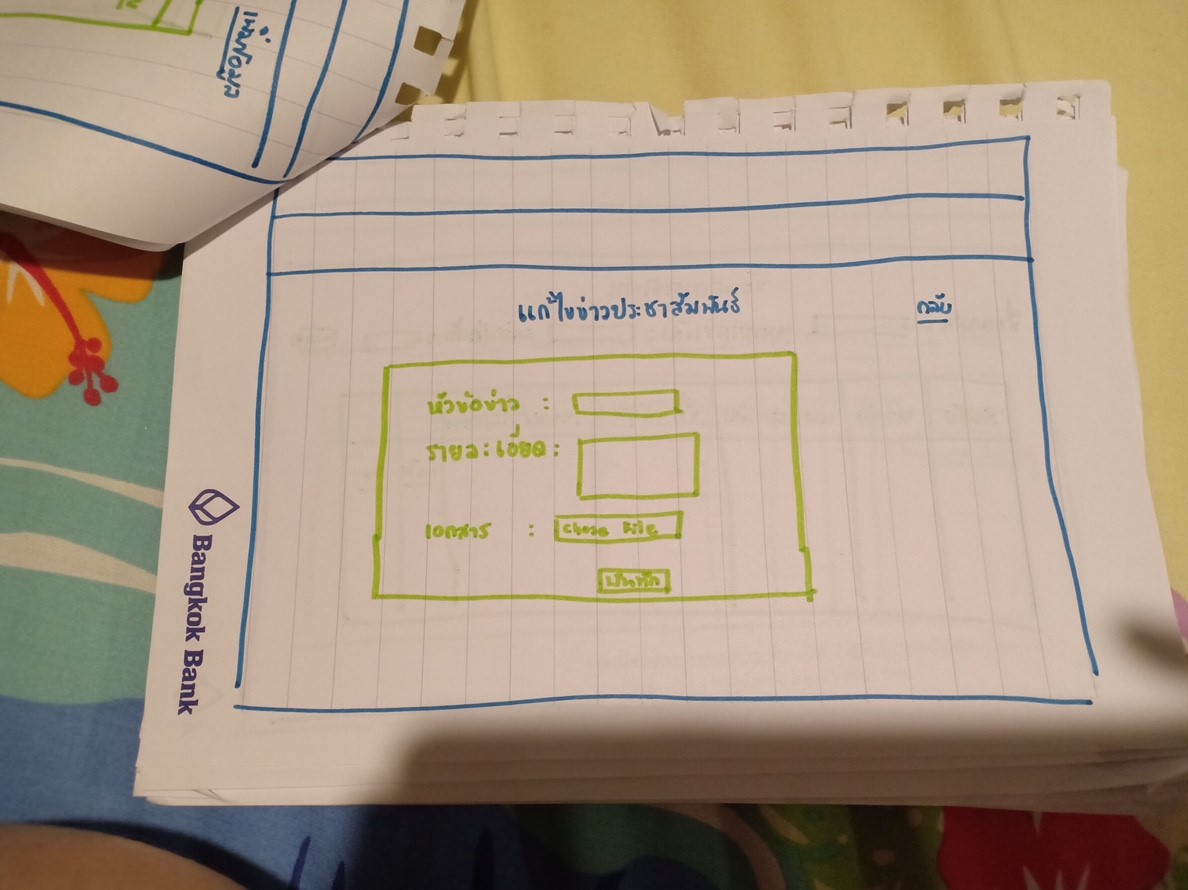 เพิ่มข้อมูล
แก้ไขข่าวประชาสัมพันธ์
กลับ
หัวข้อข่าว :
รายละเอียด :
เอกสาร : Chose File
บันทึก
Bangkok Bank